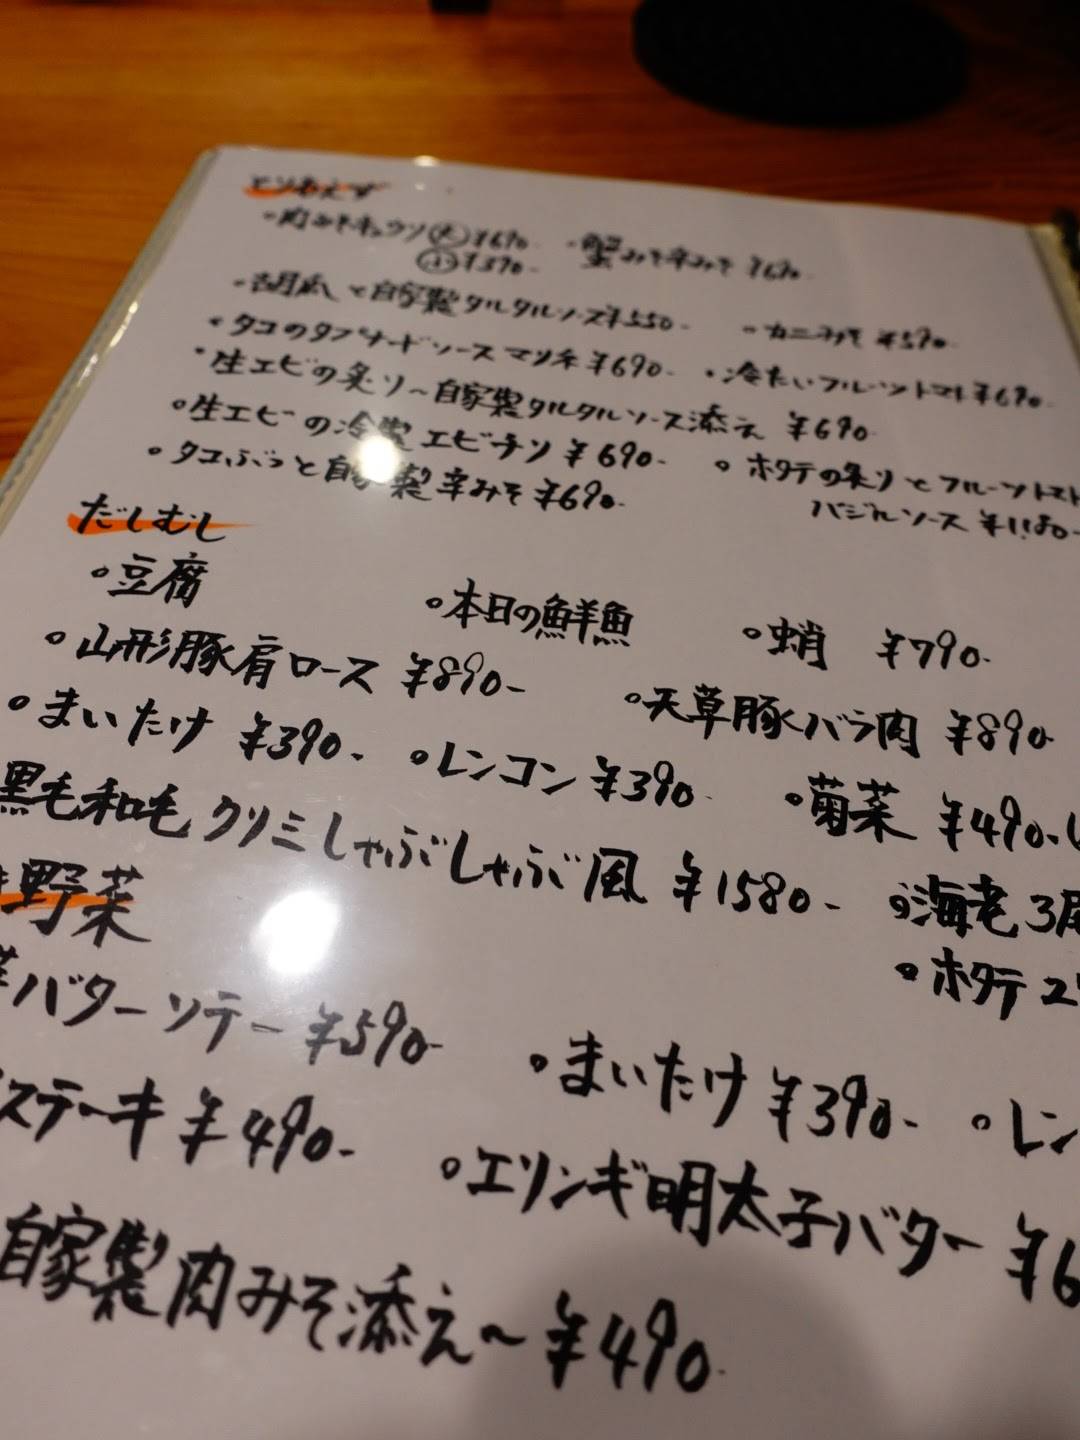 とりあえず
・肉みそキュウリ 大 ¥690- ・蟹みそ辛みそ ¥690-
小 ¥390-
・胡瓜と自家製タルタルソース ¥550- ・カニみそ ¥590-
・タコのタプナードソースマリネ ¥690- ・冷たいフルーツトマト ¥690-
・生エビの炙り〜自家製タルタルソース添え ¥690-
・生エビの冷製エビチリ ¥690- ・ホタテの炙りとフルーツトマト
バジルソース ¥1180-
・タコぶつと自家製辛みそ ¥690-
だしむし
・豆腐 ・本日の鮮魚 ・蛸 ¥790-
・山形豚肩ロース ¥890- ・天草豚バラ肉 ¥890-
・まいたけ ¥390- ・レンコン ¥390- ・菊菜 ¥490-
黒毛和毛クリミしゃぶしゃぶ風 ¥1580- ・海老3尾
・ホタテ2
野菜
バターソテー ¥590- ・まいたけ ¥390- ・レン
ステーキ ¥490- ・エリンギ明太子バター ¥6
自家製肉みそ添え〜 ¥490-